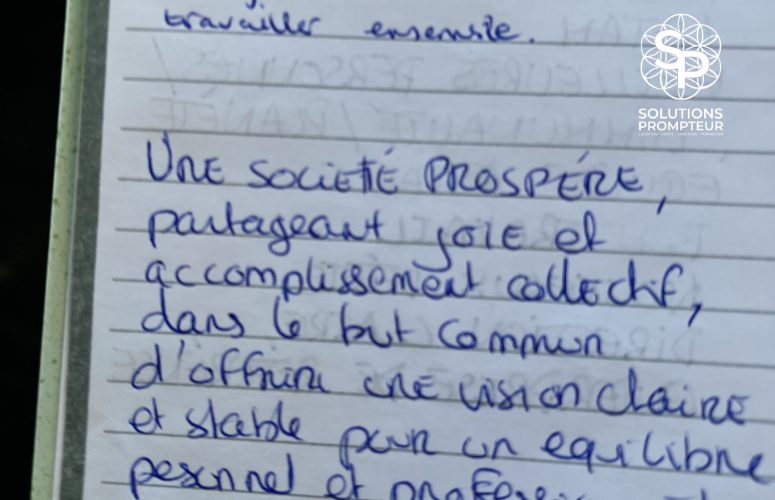 travailler ensemble.
SP
SOLUTIONS
PROMPTEUR
UNE SOCIÉTÉ PROSPÈRE,
partageant JOIE et
accomplissement collectif,
dans le but commun
d'offrir une vision claire
et stable pour un equilibre
personnel et